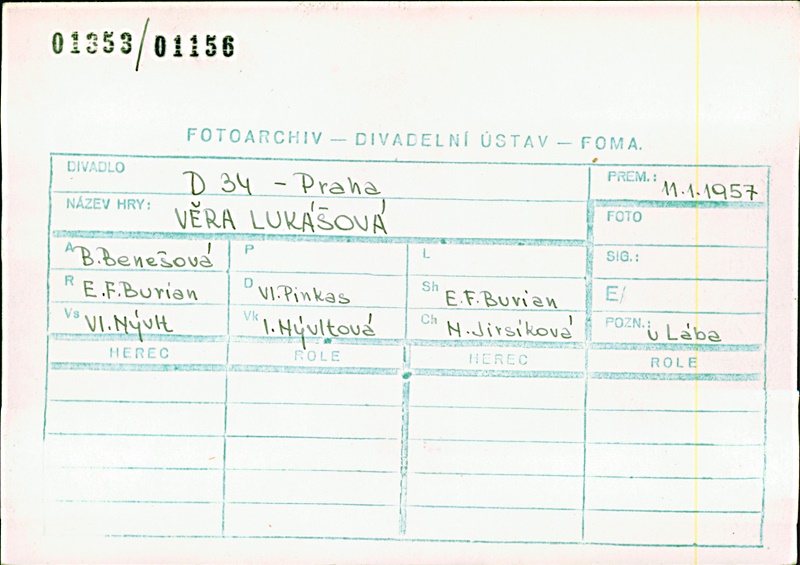 01353/01156
FOTOARCHIV — DIVADELNÍ ÚSTAV — FOMA.
DIVADLO D 34 - Praha PREM.: 11.1.1957
NÁZEV HRY: VĚRA LUKÁŠOVÁ FOTO
A B.Benešová P L SIG.:
R E.F.Burian D Vl.Pinkas Sh E.F.Burian E/
Vs Vl.Nývlt Vk I.Nývltová Ch N.Jirsíková POZN.: U Lába
HEREC ROLE HEREC ROLE